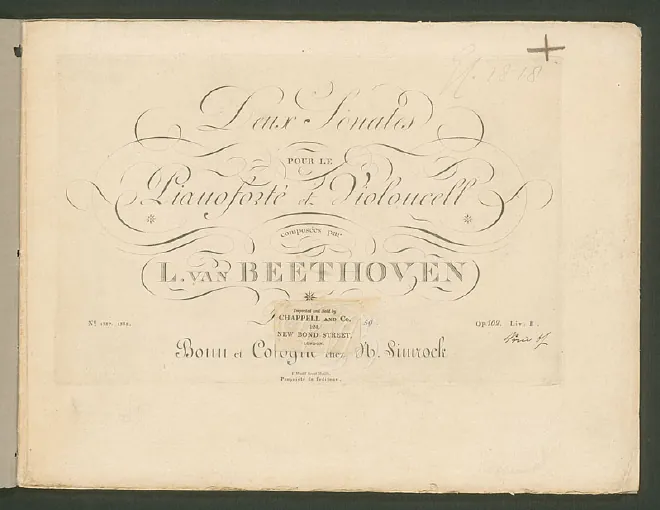 Deux Sonates
POUR LE
Pianoforte et Violoncell
composées par
L. VAN BEETHOVEN
Imported and Sold by
CHAPPELL AND Co.
NEW BOND STREET,
LONDON.
Op. 102. Liv.
Bonn et Cologne chez N. Simrock
Propriété de l'éditeur.